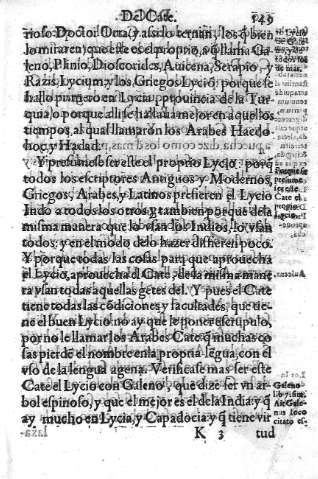 Del Cate. 149
rioso Doctor Orta, y assi lo ternan, los q̃ bien
lo miraren, que este es el proprio, a q̃ llama Ga
leno, Plinio, Dioscorides, Auicena, Serapio, y
Razis Lycium, y los Griegos Lycio: porque se
hallo primero en Lycia, prouincia de la Tur
quia, o porque alli se hallaua mejor en aquellos
tiempos, al qual llamaron los Arabes Hacdo
hoc, y Hadad.
Y presumese ser este el proprio Lycio, porq̃
todos los escriptores Antiguos y Modernos,
Griegos, Arabes, y Latinos prefieren el Lycio
Indo a todos los otros, y tambien porque de la
misma manera que lo vsan los Indios, lo vsan
todos, y en el modo de lo hazer difieren poco.
Y porque todas las cosas para que aprouecha
el Lycio, aprouecha el Cate, de la misma mane
ra vsan todas aquellas gẽtes del. Y pues el Cate
tiene todas las cõdiciones y facultades, que tie-
ne el buen Lycio no ay que le poner escrupulo,
por no le llamar los Arabes Cate q̃ muchas co
sas pierde el nombre en la propria legua, con el
vso de la lengua agena. Verificase mas ser este
Cate el Lycio con Galeno, que dize ser vn ar
bol espinoso, y que el mejor es el de la India y q̃
ay mucho en Lycia, y Capadocia y q̃ tiene vir
K 3 tud
Galeno
lib. 7. sim.
citato